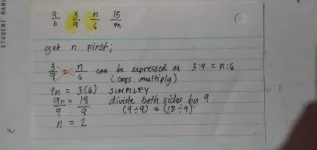 9/b 3/9 n/6 15/m
get n first;
3/9 = n/6 can be expressed as 3:9 = n:6
(cross multiply)
9n = 3(6) SIMPLIFY
9n/9 = 18/9 divide both sides by 9
(9÷9) = (18÷9)
n = 2